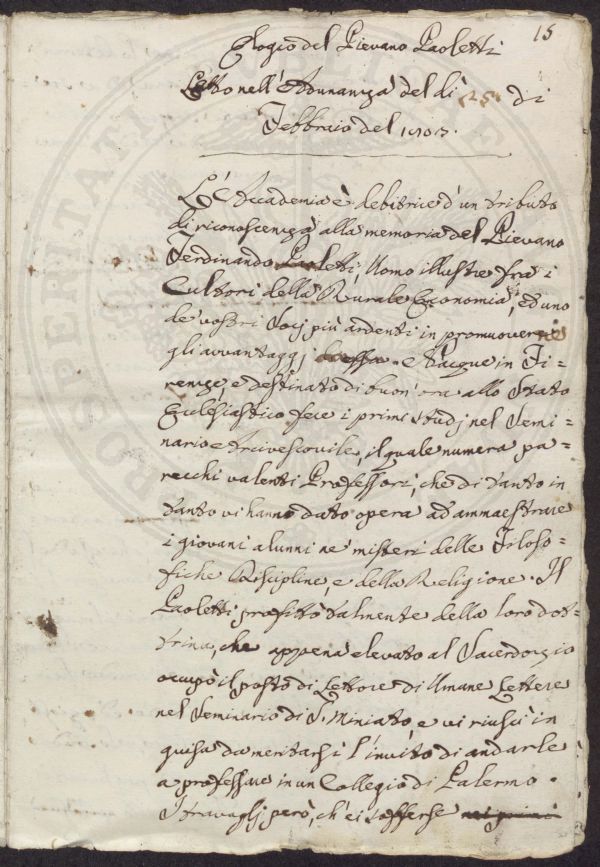 15
Elogio del Pievano Paoletti
Letto nell'Adunanza del dì 25. di
Febbraio del 1803.
L'Accademia è debitrice d'un tributo
di riconoscenza alla memoria del Pievano
Ferdinando Paoletti, Uomo illustre fra i
Cultori della Rurale Economia, ed uno
de vostri Socj più ardenti in promuoverne
gli avvantaggj. Nacque in Fi=
renze e destinato di buon'ora allo Stato
Ecclesiastico fece i primi studj nel Semi=
nario Arcivescovile, il quale numera pa=
recchi valenti Professori, che di tanto in
tanto vi hanno dato opera ad ammaestrare
i giovani alunni ne' misteri delle Filoso=
fiche Discipline, e della Religione. Il
Paoletti profittò talmente della loro dot=
trina, che appena elevato al Sacerdozio
occupò il posto di Lettore di Umane Lettere
nel Seminario di S. Miniato, e vi riuscì in
guisa da meritarsi l'invito di andarle
a professare in un Collegio di Palermo.
I travaglj però, ch'ei sofferse nei primi
PROSPERITATI PUBLICAE